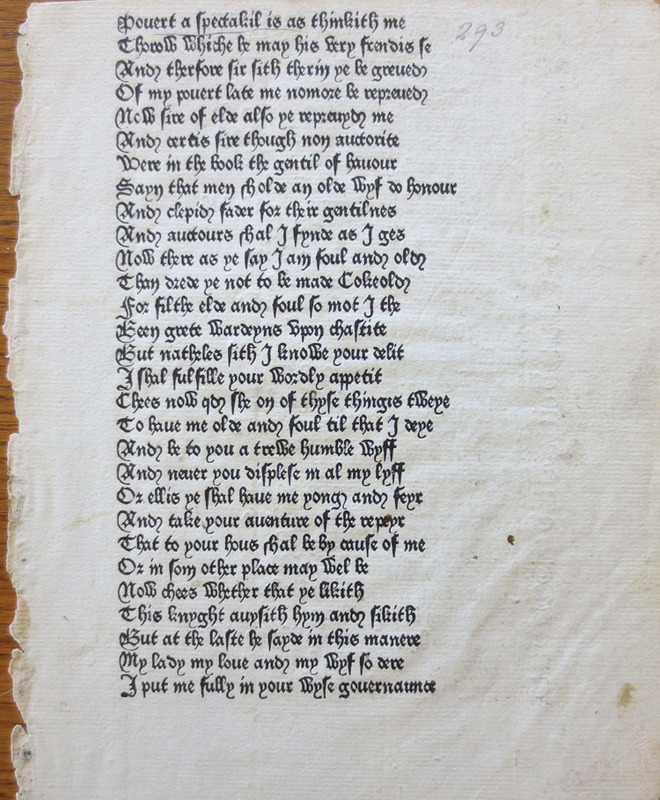 Pouert a spectakil is as thinkith me
293
Thorow whiche he may his very frendis se
And therfore sir sith therin ye be greued
Of my pouert late me nomore be repreued
Now sire of elde also ye repreuyd me
And certis sire though non auctorite
Were in the book the gentil of hauour
Sayn that men sholde an olde wyf do honour
And clepid fader for their gentilnes
And auctours shal I fynde as I ges
Now there as ye say I am foul and old
Than drede ye not to be made Cokeold
For filthe elde and foul so mot I the
Been grete wardeyns vpon chastite
But natheles sith I knowe your delit
I shal fulfille your wordly appetit
Chees now qd she on of thyse thingis tweye
To have me olde and foul til that I deye
And be to you a trewe humble wyff
And neuer you displese in al my lyff
Or ellis ye shal haue me yong and feyr
And take your auenture of the repeyr
That to your hous shal be by cause of me
Or in som other place may wel be
Now chees whether that ye likith
This knyght auysith hym and sikith
But at the laste he sayde in this manere
My lady my love and my wyf so dere
I put me fully in your wyse governaunce